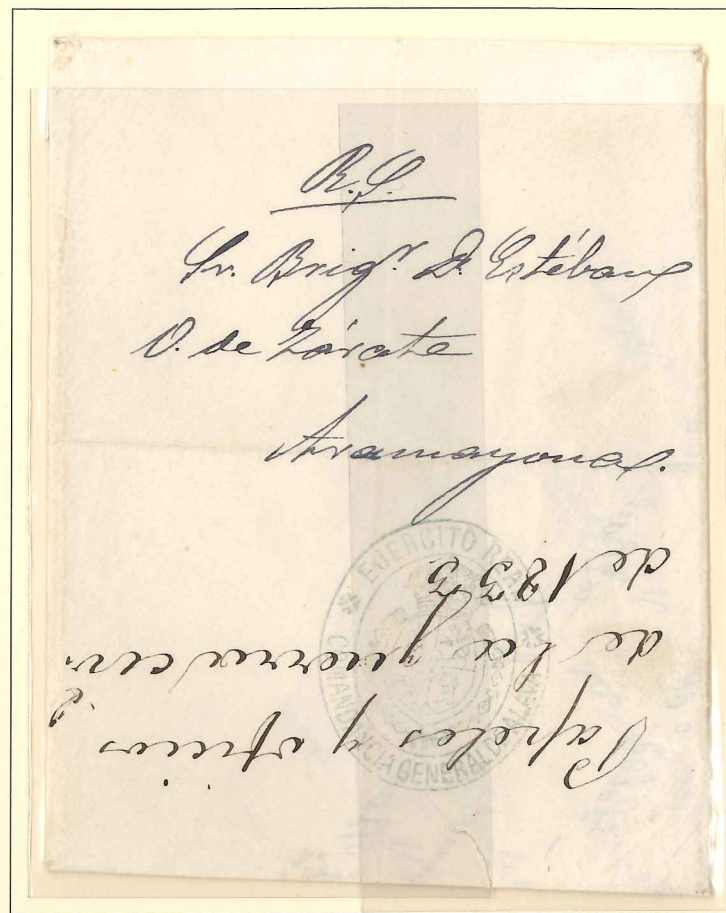 R.S.
Sr. Brigr. D. Estéban
O. de Zárate
Aramayona.
EJERCITO REAL
COMANDANCIA GENERAL DE ALAVA
Papeles y oficios
de la guerra civil
de 1833